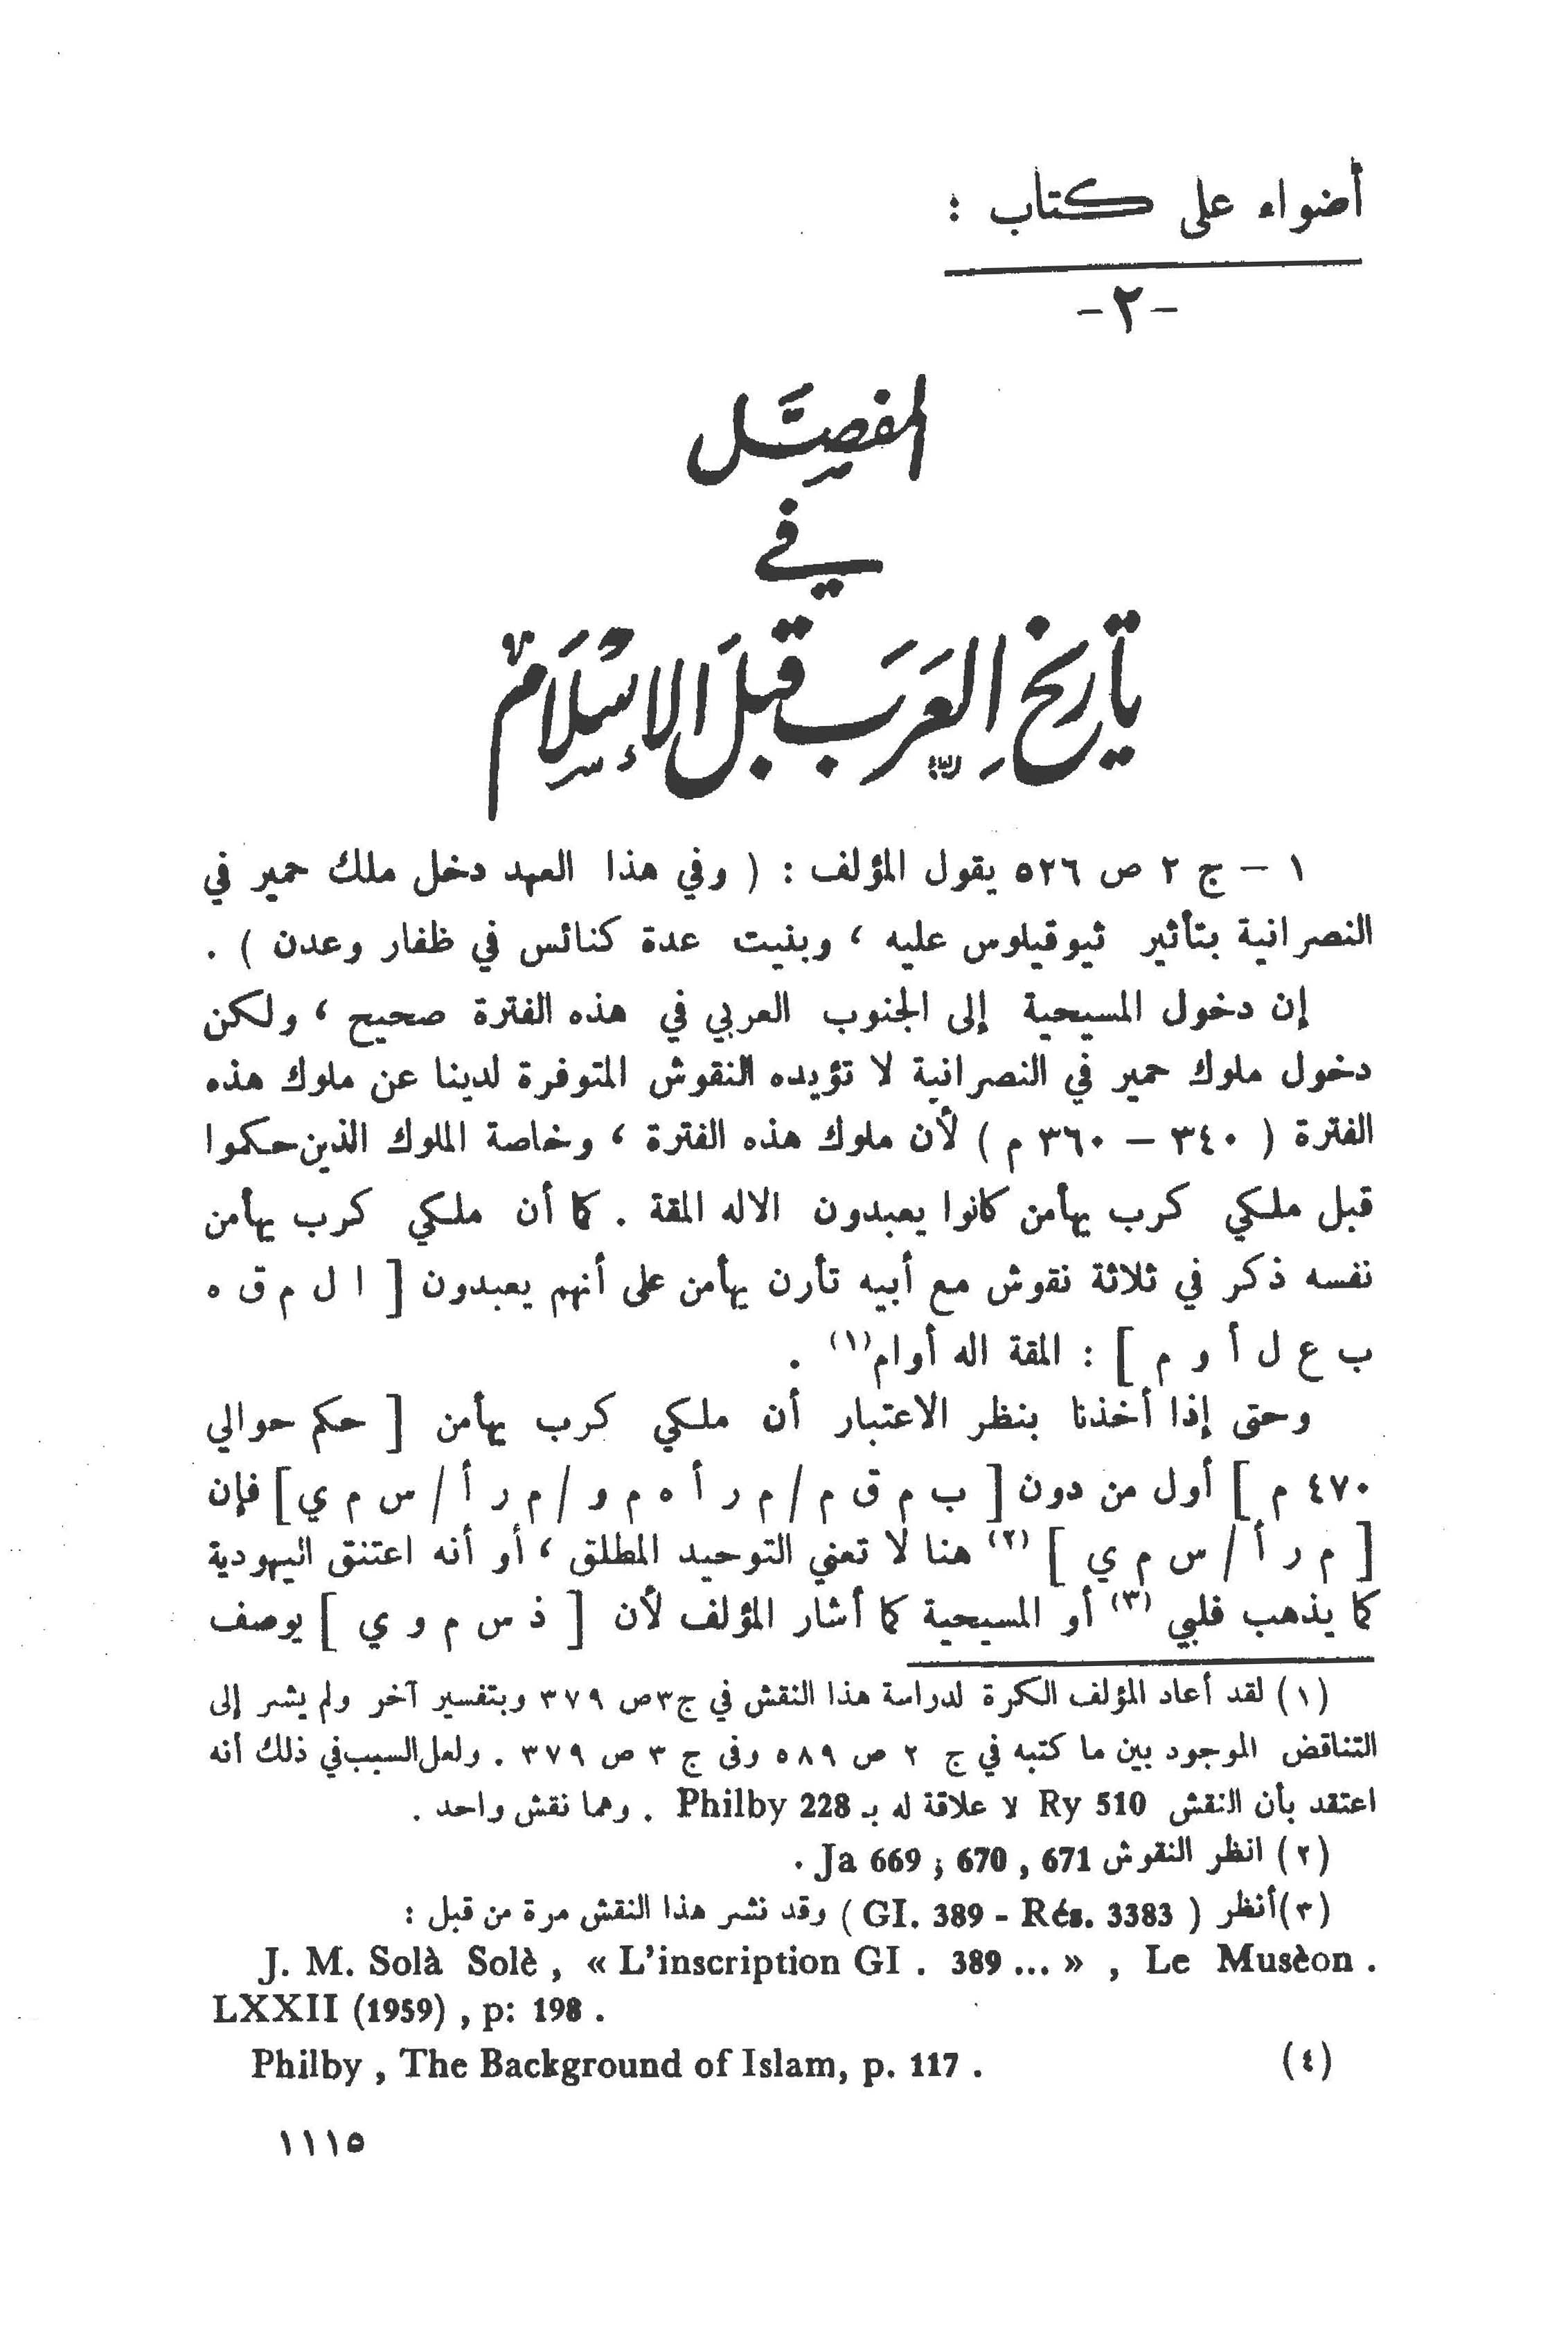 أضواء على كتاب :
-٢-
المفصَّل
في
تأريخ العرب قبل الإسلام
١ - ج ٢ ص ٥٢٦ يقول المؤلف : ( وفي هذا العهد دخل ملك حمير في
النصرانية بتأثير ثيوقيلوس عليه ، وبنيت عدة كنائس في ظفار وعدن ) .
إن دخول المسيحية إلى الجنوب العربي في هذه الفترة صحيح ، ولكن
دخول ملوك حمير في النصرانية لا تؤيده النقوش المتوفرة لدينا عن ملوك هذه
الفترة ( ٣٤٠ - ٣٦٠ م ) لأن ملوك هذه الفترة ، وخاصة الملوك الذين حكموا
قبل ملكي كرب يهأمن كانوا يعبدون الاله المقة . كما أن ملكي كرب يهأمن
نفسه ذكر في ثلاثة نقوش مع أبيه تأرن يهأمن على أنهم يعبدون [ ا ل م ق ه
ب ع ل أ و م ] : المقة اله أوام (١) .
وحتى إذا أخذنا بنظر الاعتبار أن ملكي كرب يهأمن [ حكم حوالي
٤٧٠ م ] أول من دون [ ب م ق م / م ر أ ه م و / م ر أ / س م ي ] فإن
[ م ر أ / س م ي ] (٢) هنا لا تعني التوحيد المطلق ، أو أنه اعتنق اليهودية
كما يذهب فلبي (٣) أو المسيحية كما أشار المؤلف لأن [ ذ س م و ي ] يوصف
(١) لقد أعاد المؤلف الكرة لدراسة هذا النقش في ج٣ص ٣٧٩ وبتفسير آخر ولم يشر إلى
التناقض الموجود بين ما كتبه في ج ٢ ص ٥٨٩ وفى ج ٣ ص ٣٧٩ . ولعل السبب في ذلك أنه
اعتقد بأن النقش Ry 510 لا علاقة له بـ Philby 228 . وهما نقش واحد .
(٢) انظر النقوش Ja 669 ; 670 , 671 .
(٣) أنظر ( GI. 389 - Rés. 3383 ) وقد نشر هذا النقش مرة من قبل :
J. M. Solà Solè , « L'inscription GI . 389 ... » , Le Musèon .
LXXII (1959) , p: 198 .
(٤) Philby , The Background of Islam, p. 117 .
١١١٥